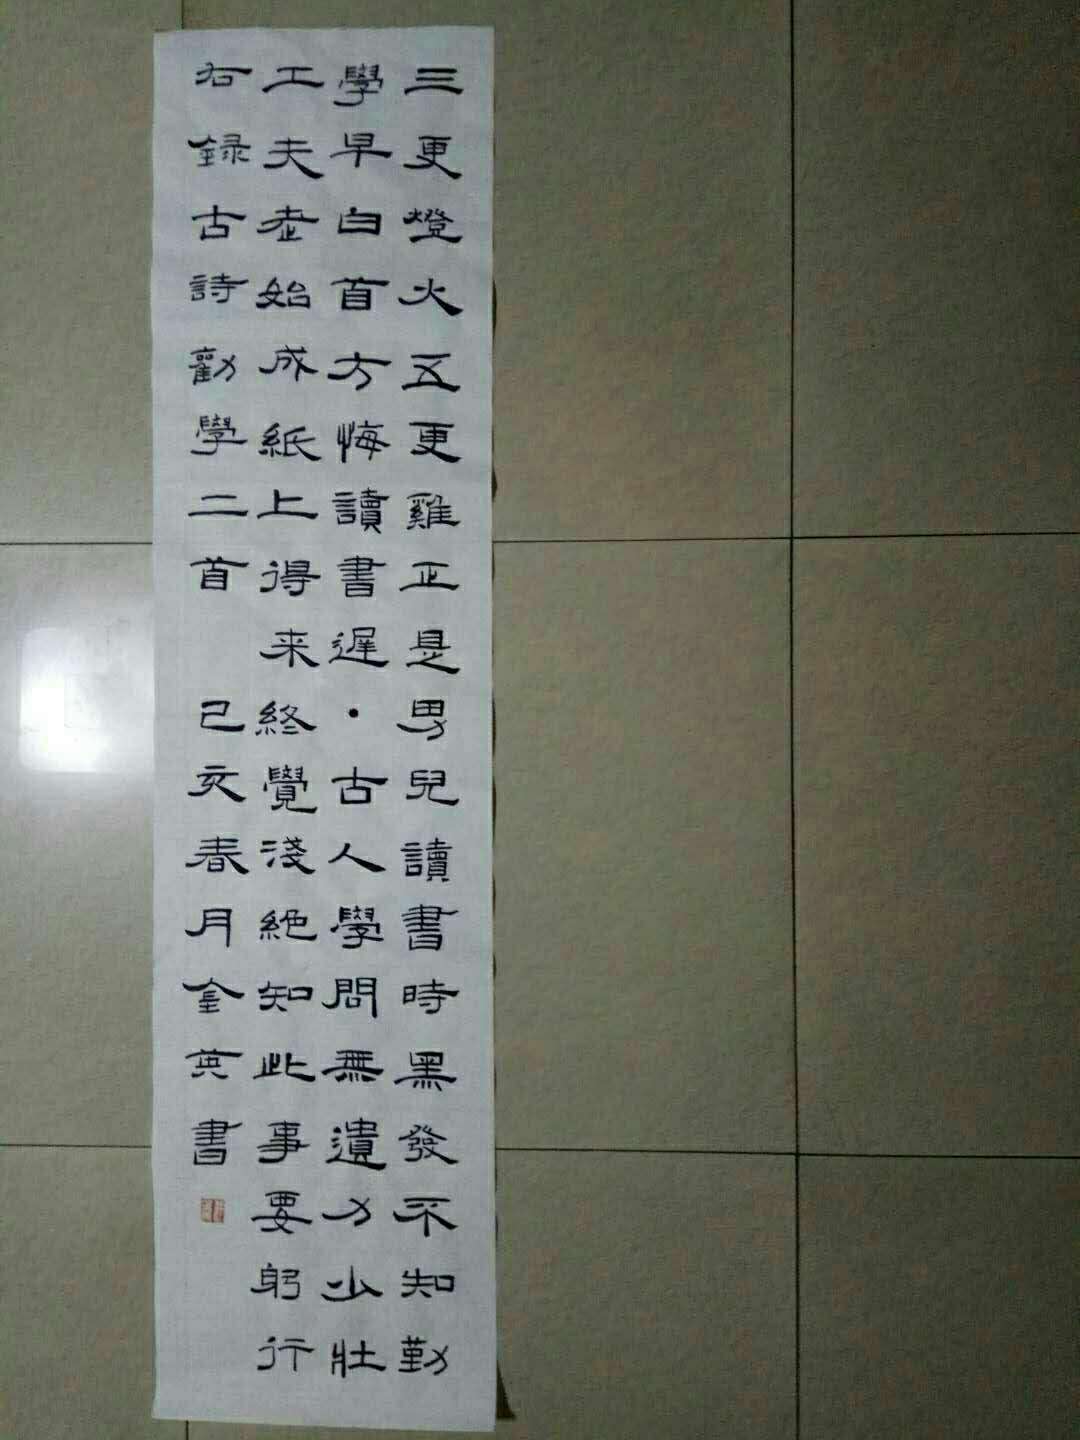 三更燈火五更雞正是男兒讀書時黑發不知勤
學早白首方悔讀書遲·古人學問無遺力少壯
工夫老始成紙上得来終覺淺絕知此事要躬行
右録古詩勸學二首 己亥春月金英書